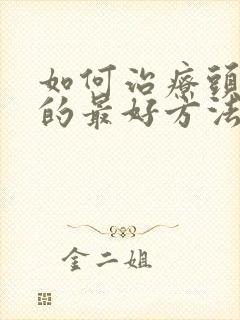 如何治療頭
的最好方法
金二姐